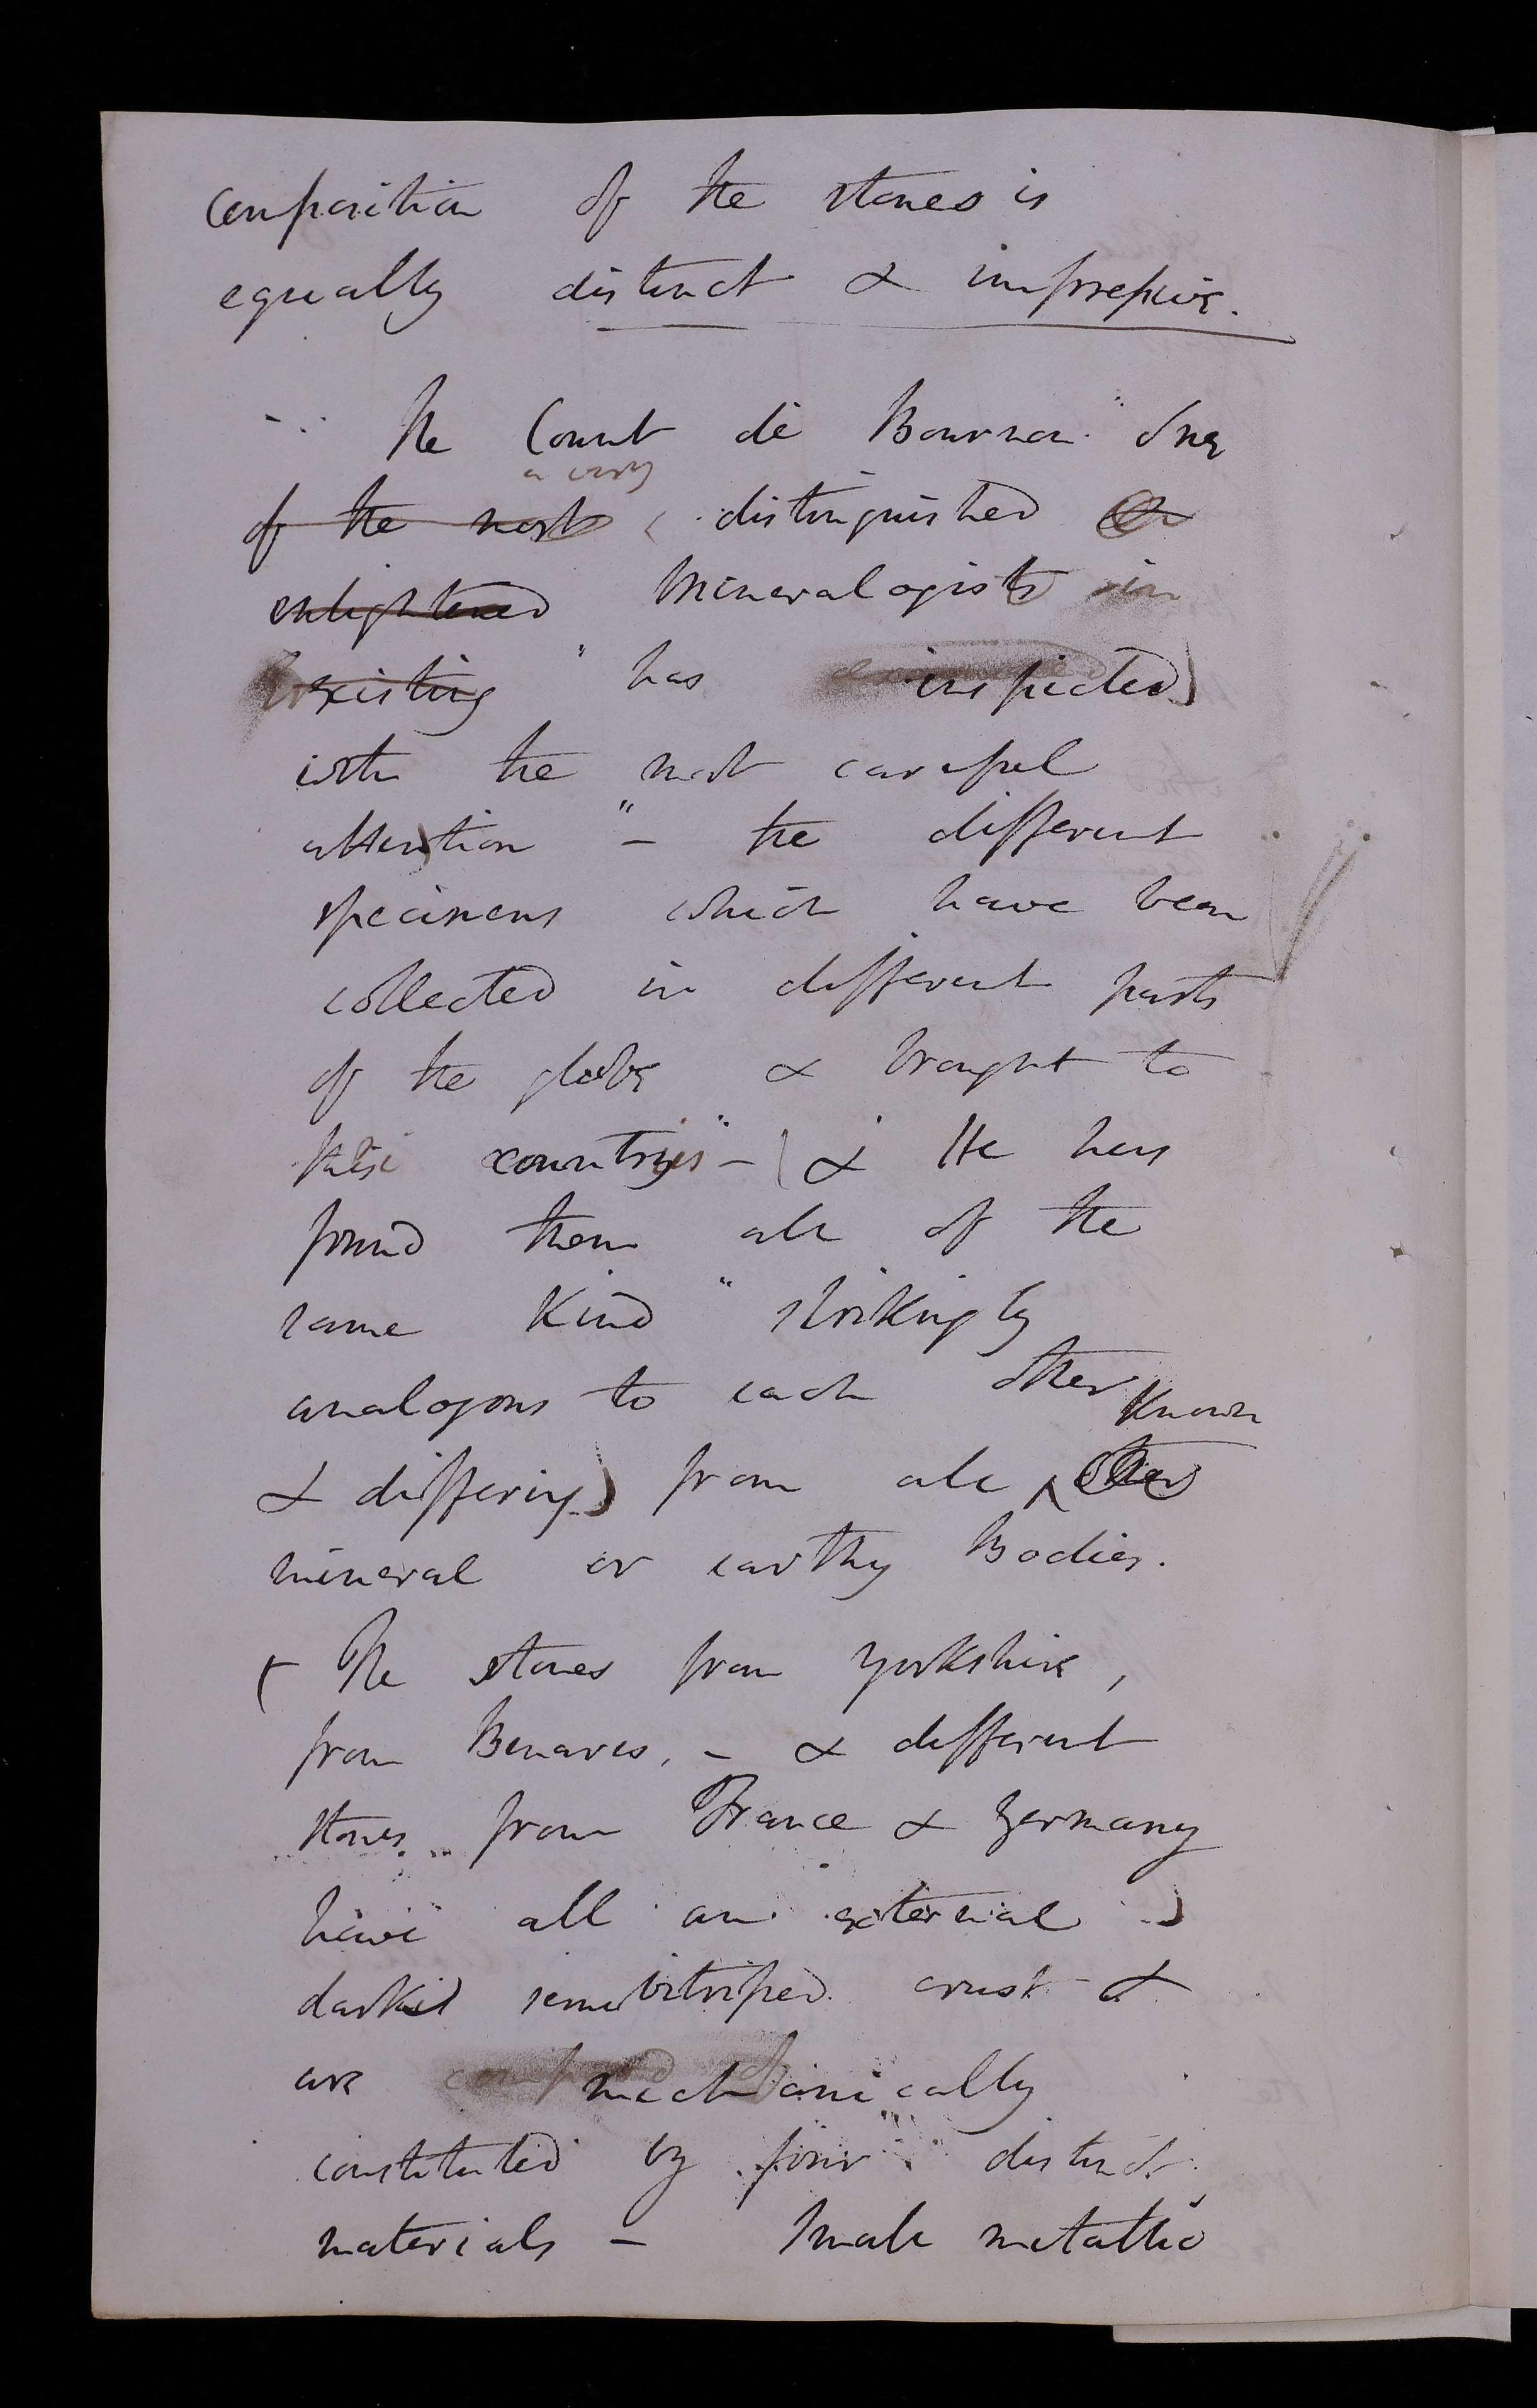 composition of the stones is
equally distinct & impressive.
The Count de Bournon " One
a very
of the most distinguished &
enlightened Mineralogists in
existing " has inspected
with the most careful
attention " – the different
specimens which have been
collected in different parts
of the globe & brought to
these countries " – & He has
found them all of the
same Kind " strikingly
analogous to each other
Known
& differing from all other
mineral or earthy Bodies.
The stones from Yorkshire,
from Benares, – & different
stones from France & Germany
have all an external
dark semivitrified crust &
are mechanically
constituted by four distinct
materials – Small metallic